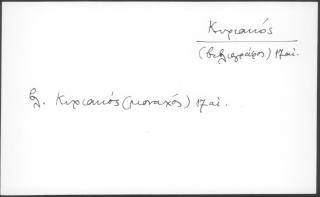 Κυριακός
(βιβλιογράφος) 17 αἰ.
βλ. Κυριακός (μοναχός) 17 αἰ.